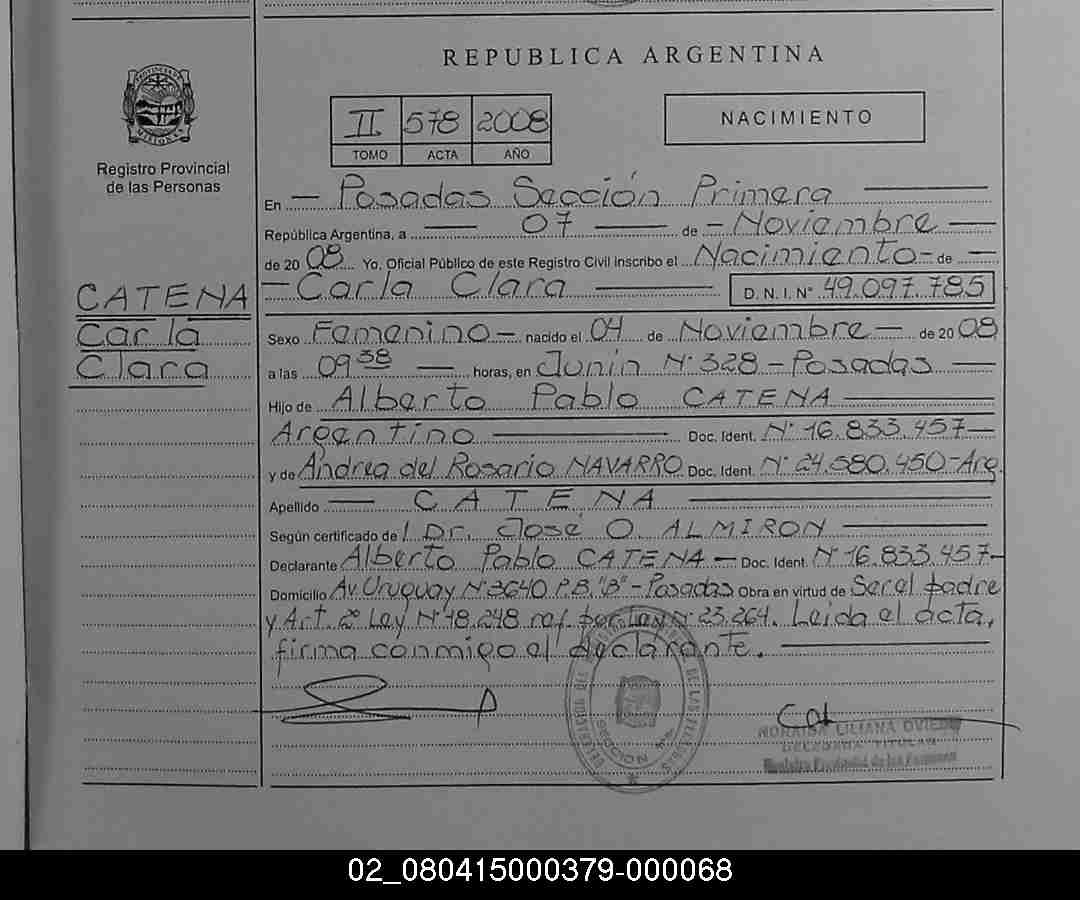 REPUBLICA ARGENTINA
PROVINCIA DE MISIONES
Registro Provincial
de las Personas
II 578 2008
TOMO ACTA AÑO
NACIMIENTO
En — Posadas Sección Primera —
República Argentina, a — 07 — de - Noviembre —
de 2008 Yo, Oficial Público de este Registro Civil inscribo el Nacimiento - de —
— Carla Clara — D. N. I. N° 49.097.785
CATENA
Carla
Clara
Sexo Femenino — nacido el 04 de Noviembre — de 2008
a las 09 38 — horas, en Junín N° 328 - Posadas —
Hijo de Alberto Pablo CATENA —
Argentino — Doc. Ident. N° 16.833.457 —
y de Andrea del Rosario NAVARRO Doc. Ident. N° 24.580.450 - Arg.
Apellido — CATENA —
Según certificado de Dr. José O. ALMIRON —
Declarante Alberto Pablo CATENA — Doc. Ident. N° 16.833.457 —
Domicilio Av. Uruguay N° 3640 P.B. "B" - Posadas Obra en virtud de Ser el padre
y Art. 2° Ley N° 18.248 ref. por Ley N° 23.264. Leida el acta,
firma conmigo el declarante. —
SECCION
DE LAS PERSONAS
LILIANA OVIEDO
TITULAR
Registro Provincial de las Personas
02_080415000379-000068